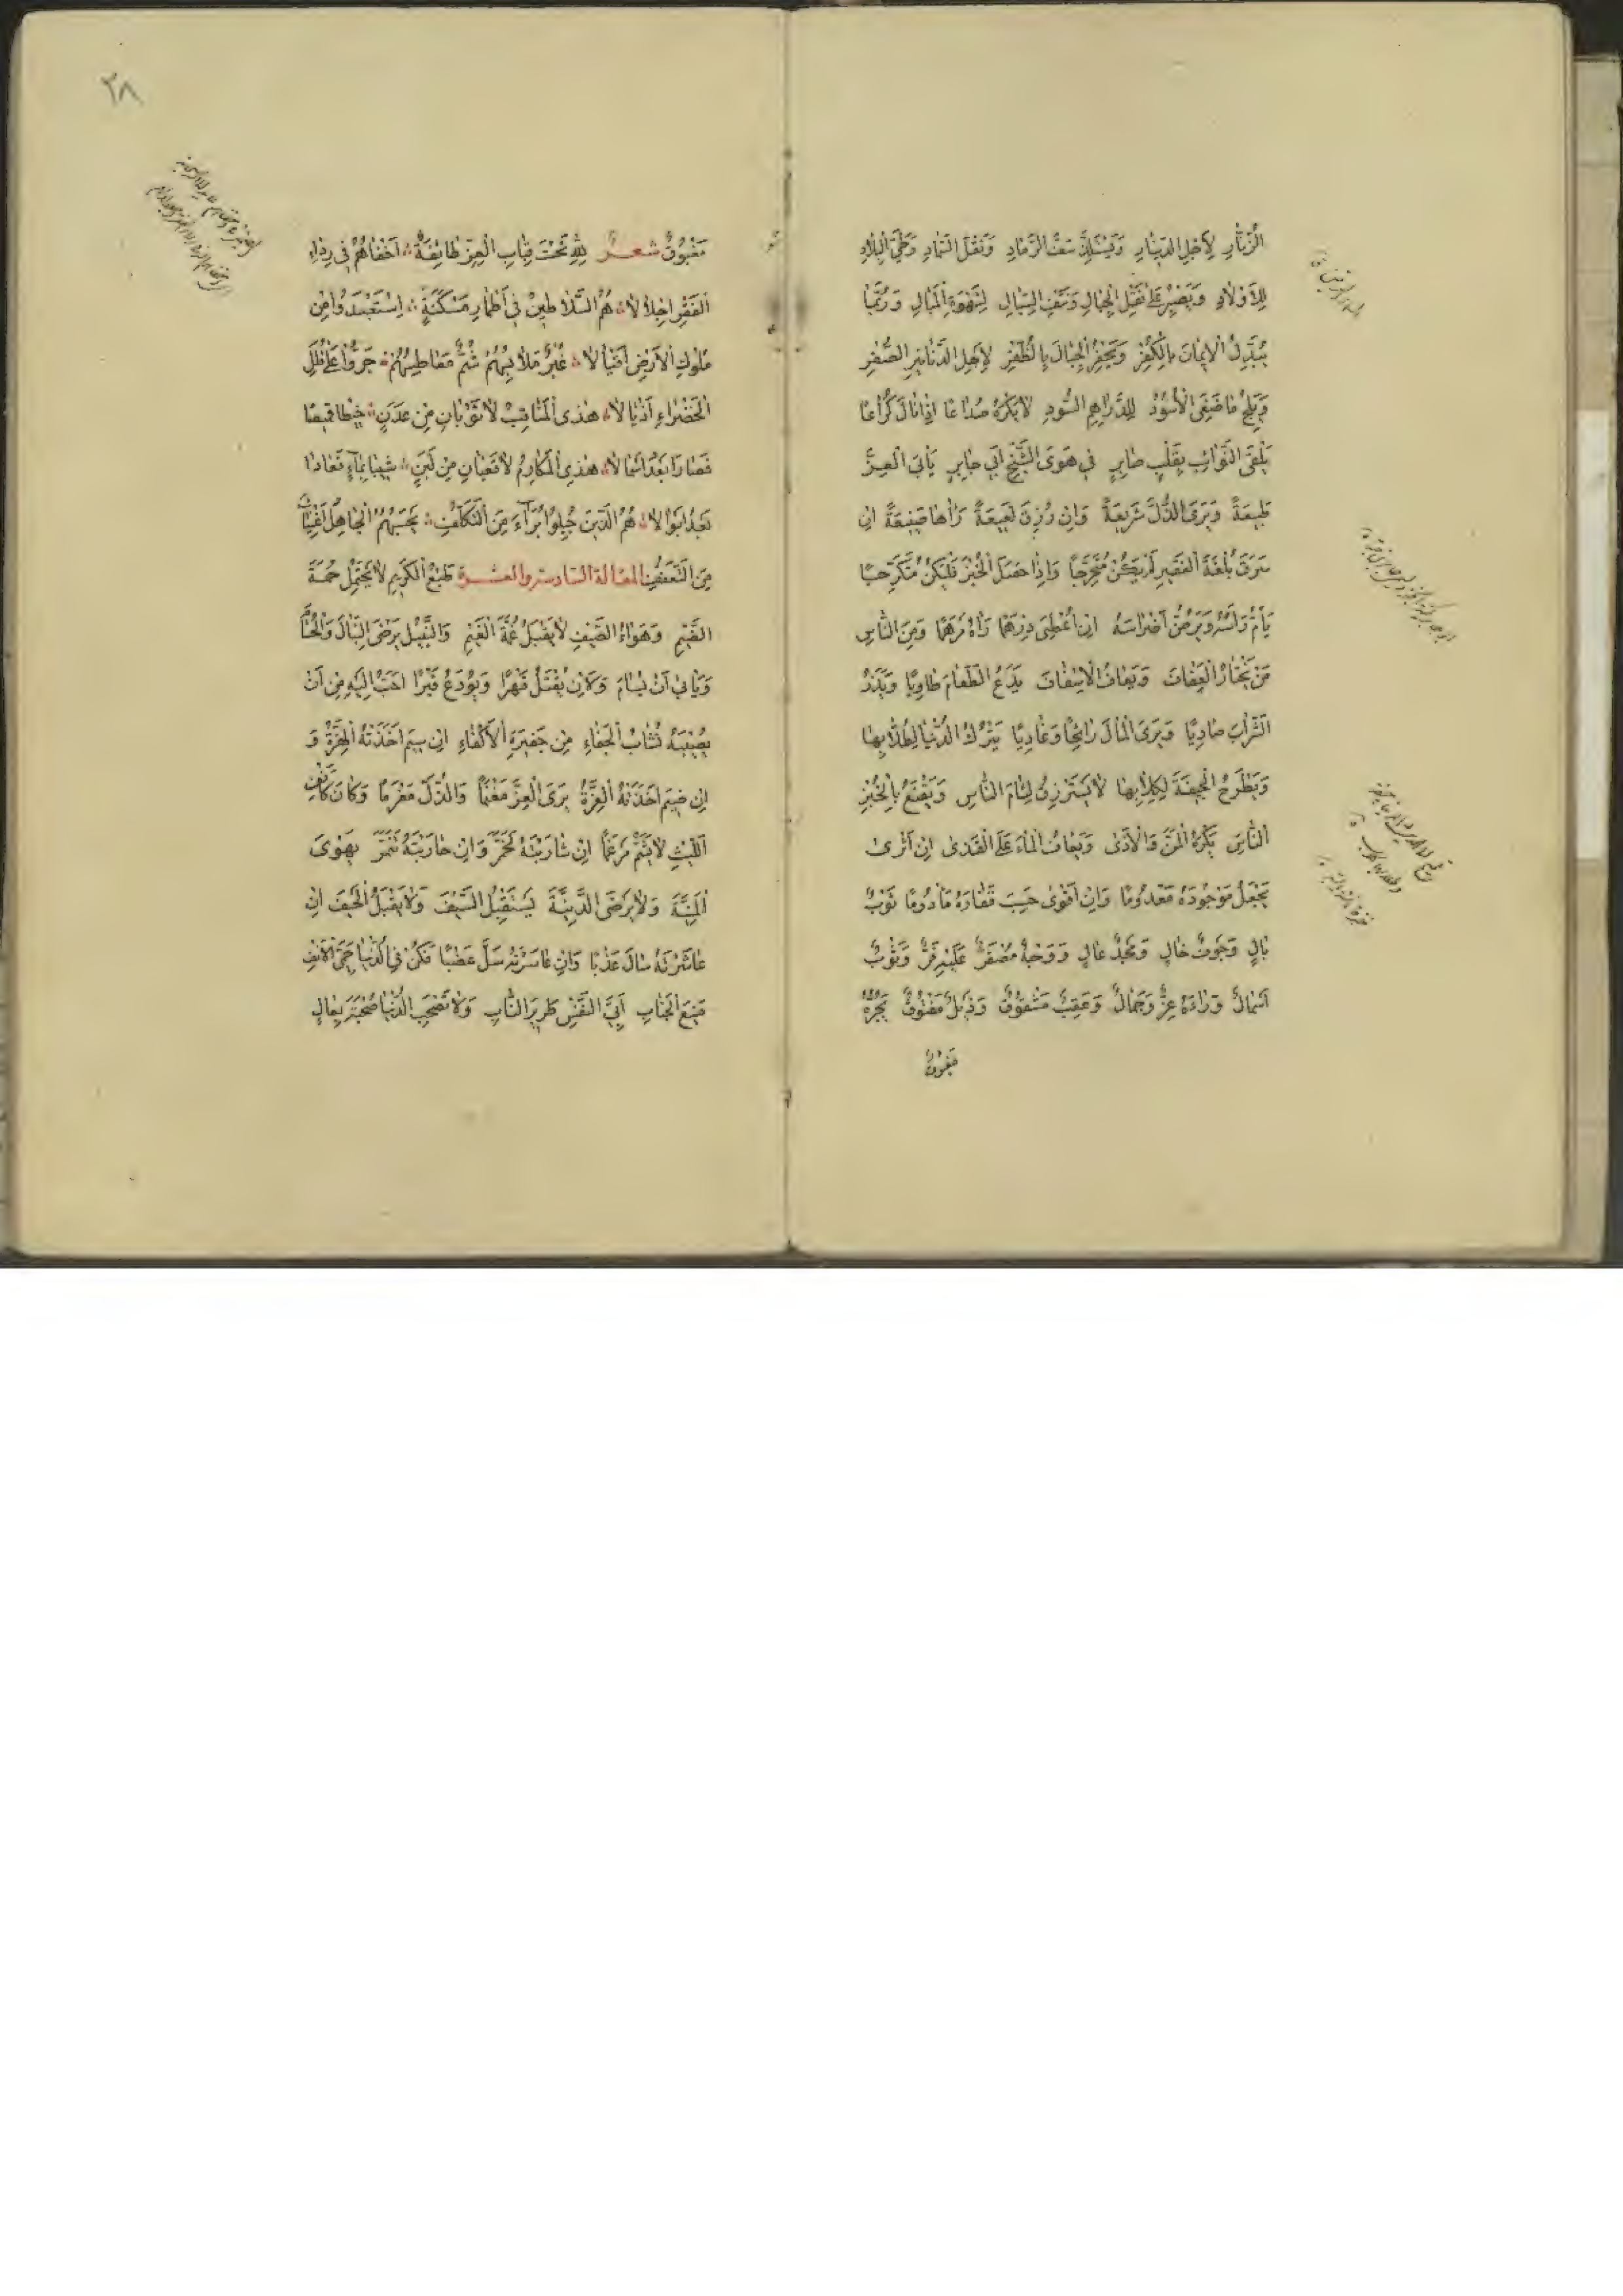 الزُّنَّارِ لِأَجْلِ الدِّينَارِ وَيَسْتَلِذُّ سَفَّ الرَّمَادِ وَنَقْلَ السَّمَادِ وَطَيَّ الْبِلَادِ
لِلْأَوْلَادِ وَيَصْبِرُ عَلَى نَقْلِ الْجِبَالِ وَنَتْفِ السِّبَالِ لِشَهْوَةِ الْمَالِ وَرُبَّمَا
يُبَدِّلُ الْإِيمَانَ بِالْكُفْرِ وَيَحْفِرُ الْجِبَالَ بِالظُّفْرِ لِأَجْلِ الدَّنَانِيرِ الصُّفْرِ
وَيَلِجُ مَاضِغَيِ الْأُسُودِ لِلدَّرَاهِمِ السُّودِ لَا يَكْرَهُ صُدَاعًا إِذَا نَالَ كُرَاعًا
يَلْقَى النَّوَائِبَ بِقَلْبٍ صَابِرٍ فِي هَوَى الشَّيْخِ أَبِي جَابِرٍ يَأْبَى الْعِزَّ
طَبِيعَةً وَيَرَى الذُّلَّ شَرِيعَةً وَإِنْ رُزِقَ لَعِيعَةً رَآهَا صَنِيعَةً إِنْ
سَرَقَ بُلْغَةَ الْفَقِيرِ لَمْ يَكُنْ مُتَحَرِّجًا وَإِذَا حَصَلَ الْخُبْزُ فَلْيَكُنْ مُتَكَرِّجًا
يَأْمُ رَأْسَهُ وَيَرُضُّ أَضْرَاسَهُ إِنْ أُعْطِيَ دِرْهَمًا رَآهُ مَرْهَمًا وَمِنَ النَّاسِ
مَنْ يَخْتَارُ الْعَفَافَ وَيَعَافُ الْإِسْفَافَ يَدَعُ الطَّعَامَ طَاوِيًا وَيَذَرُ
الشَّرَابَ صَادِيًا وَيَرَى الْمَالَ رَائِحًا وَغَادِيًا يَتْرُكُ الدُّنْيَا لِطُلَّابِهَا
وَيَطْرَحُ الْجِيفَةَ لِكِلَابِهَا لَا يَسْتَرْزِقُ لِئَامَ النَّاسِ وَيَقْنَعُ بِالْخُبْزِ
النَّاسِ يَكْرَهُ الْمَنَّ وَالْأَذَى وَيَعَافُ الْمَاءَ عَلَى الْقَذَى إِنْ أَثْرَى
يَجْعَلُ مَوْجُودَهُ مَعْدُومًا وَإِنْ أَقْوَى حَسِبَ قَفَارَهُ مَأْدُومًا ثَوْبٌ
بَالٍ وَجَوْفٌ خَالٍ وَمَجْدٌ عَالٍ وَوَجْهٌ مُصْفَرٌّ عَلَيْهِ قُرٌّ وَثَوْبٌ
أَسْمَالٌ وَرَاءَهُ عِزٌّ وَجَمَالٌ وَعَقِبٌ مَشْقُوقٌ وَذَيْلٌ مَفْتُوقٌ يَجُرُّهُ
مَغْبُوقٌ
٢٨
مَغْبُوقٌ شعر لِلَّهِ تَحْتَ قِبَابِ الْعِزِّ طَائِفَةٌ ؞ أَخْفَاهُمْ فِي رِدَاءِ
الْفَقْرِ إِجْلَالًا ؞ هُمُ السَّلَاطِينُ فِي أَطْمَارِ مَسْكَنَةٍ ؞ اسْتَعْبَدُوا مِنْ
مُلُوكِ الْأَرْضِ أَقْيَالًا ؞ غُبْرٌ مَلَابِسُهُمْ شُمٌّ مَعَاطِسُهُمْ ؞ جَرُّوا عَلَى فُلَلِ
الْخَضْرَاءِ أَذْيَالًا ؞ هٰذِي الْمَنَاقِبُ لَا ثَوْبَانِ مِنْ عَدَنٍ ؞ خِيطَا قَمِيصًا
فَصَارَا بَعْدُ أَسْمَالًا ؞ هٰذِي الْمَكَارِمُ لَا قَعْبَانِ مِنْ لَبَنٍ ؞ شِيبَا بِمَاءٍ فَعَادَا
بَعْدُ أَبْوَالًا ؞ هُمُ الَّذِينَ جُبِلُوا بُرَآءَ مِنَ التَّكَلُّفِ ؞ يَحْسَبُهُمُ الْجَاهِلُ أَغْنِيَاءَ
مِنَ التَّعَفُّفِ المقالة السادسة والعشرة طَبْعُ الْكَرِيمِ لَا يَحْتَمِلُ حُمَةَ
الضَّيْمِ وَهَوَاءُ الصَّيْفِ لَا يَقْبَلُ غُمَّةَ الْغَيْمِ وَالنَّبِيلُ يَرْضَى النِّبَالَ وَالْحُسَامَ
وَيَأْبَى أَنْ يُسَامَ وَلَأَنْ يُقْتَلَ قَهْرًا وَيُودَعَ قَبْرًا أَحَبُّ إِلَيْهِ مِنْ أَنْ
يُصِيبَهُ نُشَّابُ الْجَفَاءِ مِنْ جَفِيرَةِ الْأَكْفَاءِ إِنْ سِيمَ أَخَذَتْهُ الْهِزَّةُ وَ
إِنْ ضِيمَ أَخَذَتْهُ الْعِزَّةُ يَرَى الْعِزَّ مَغْنَمًا وَالذُّلَّ مَغْرَمًا وَكَانَ كَأَنْفِ
اللَّيْثِ لَا يَشَمُّ مَرْغَمًا إِنْ شَارَبْتَهُ تَخَمَّرَ وَإِنْ حَارَبْتَهُ تَنَمَّرَ يَهْوَى
الْمَنِيَّةَ وَلَا يَرْضَى الدَّنِيَّةَ يَسْتَقْبِلُ السَّيْفَ وَلَا يَقْبَلُ الْحَيْفَ إِنْ
عَاشَرْتَهُ سَالَ عَذْبًا وَإِنْ عَاسَرْتَهُ سَلَّ عَضْبًا فَكُنْ فِي الدُّنْيَا حَمِيَّ الْأَنْفِ
مَنِيعَ الْجَنَابِ أَبِيَّ النَّفْسِ طَرِيرَ النَّابِ وَلَا تَصْحَبِ الدُّنْيَا صُحْبَةَ بِعَالٍ